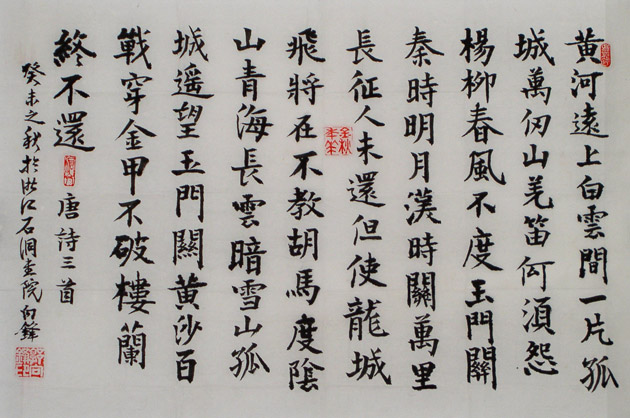 黄河遠上白雲間一片孤
城萬仞山羌笛何須怨
楊柳春風不度玉門關
秦時明月漢時關萬里
長征人未還但使龍城
飛將在不教胡馬度陰
山青海長雲暗雪山孤
城遥望玉門關黄沙百
戰穿金甲不破樓蘭
終不還
唐詩三首
癸未之秋於浙江石洞書院向鋒